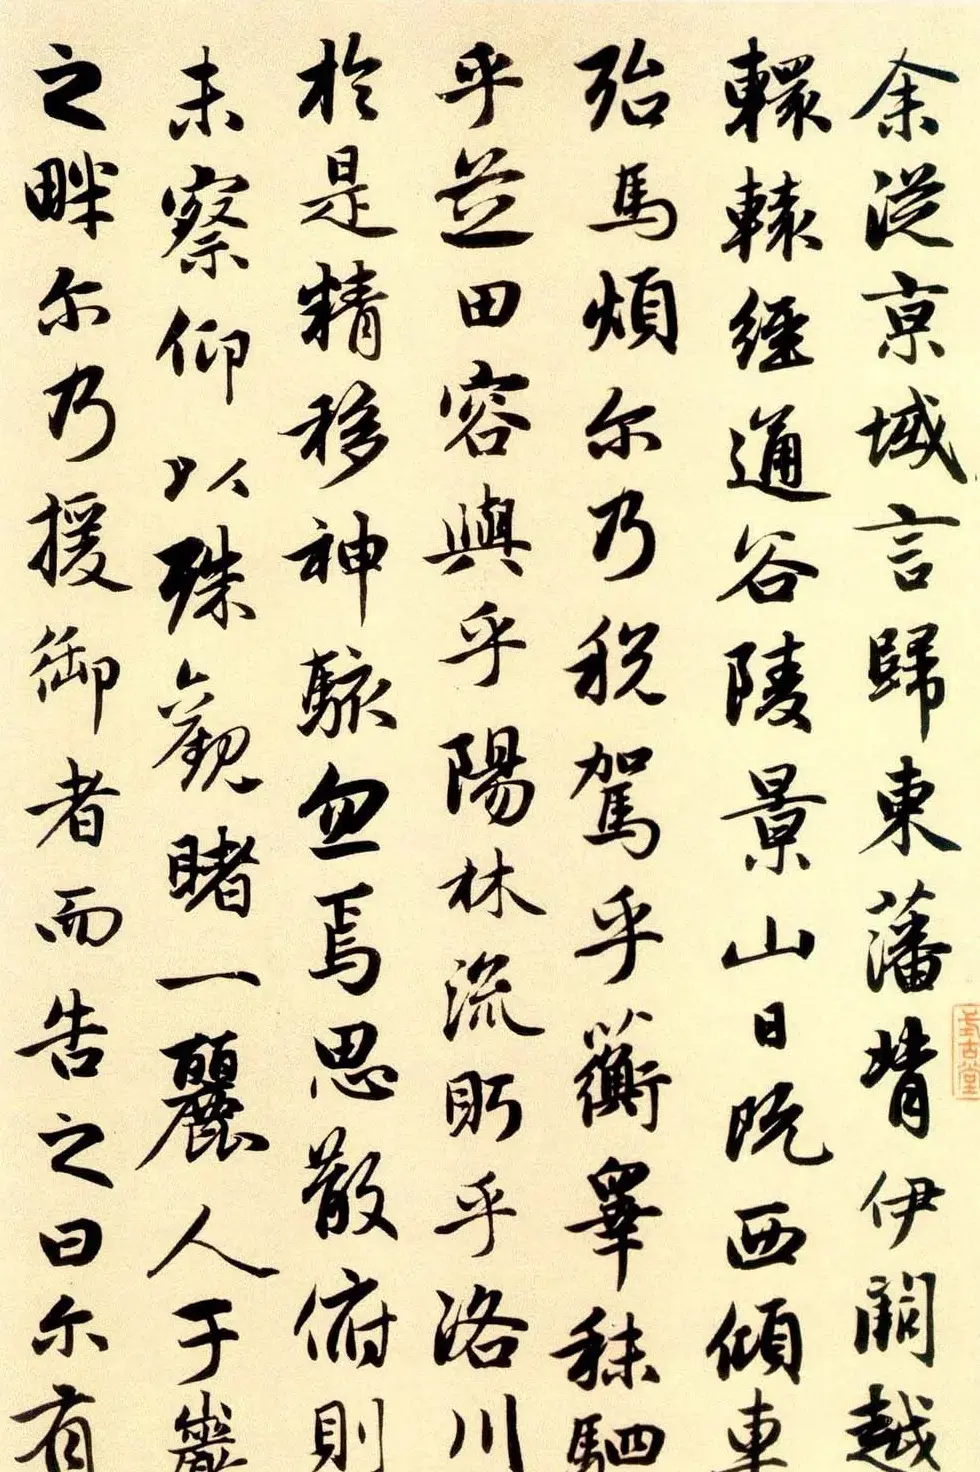 余從京域言歸東藩背伊闕越
轘轅經通谷陵景山日既西傾車
殆馬煩尔乃税駕乎蘅皋秣駟
乎芝田容與乎陽林流眄乎洛川
於是精移神駭忽焉思散俯則
未察仰以殊觀睹一麗人于巖
之畔尔乃援御者而告之曰尔有